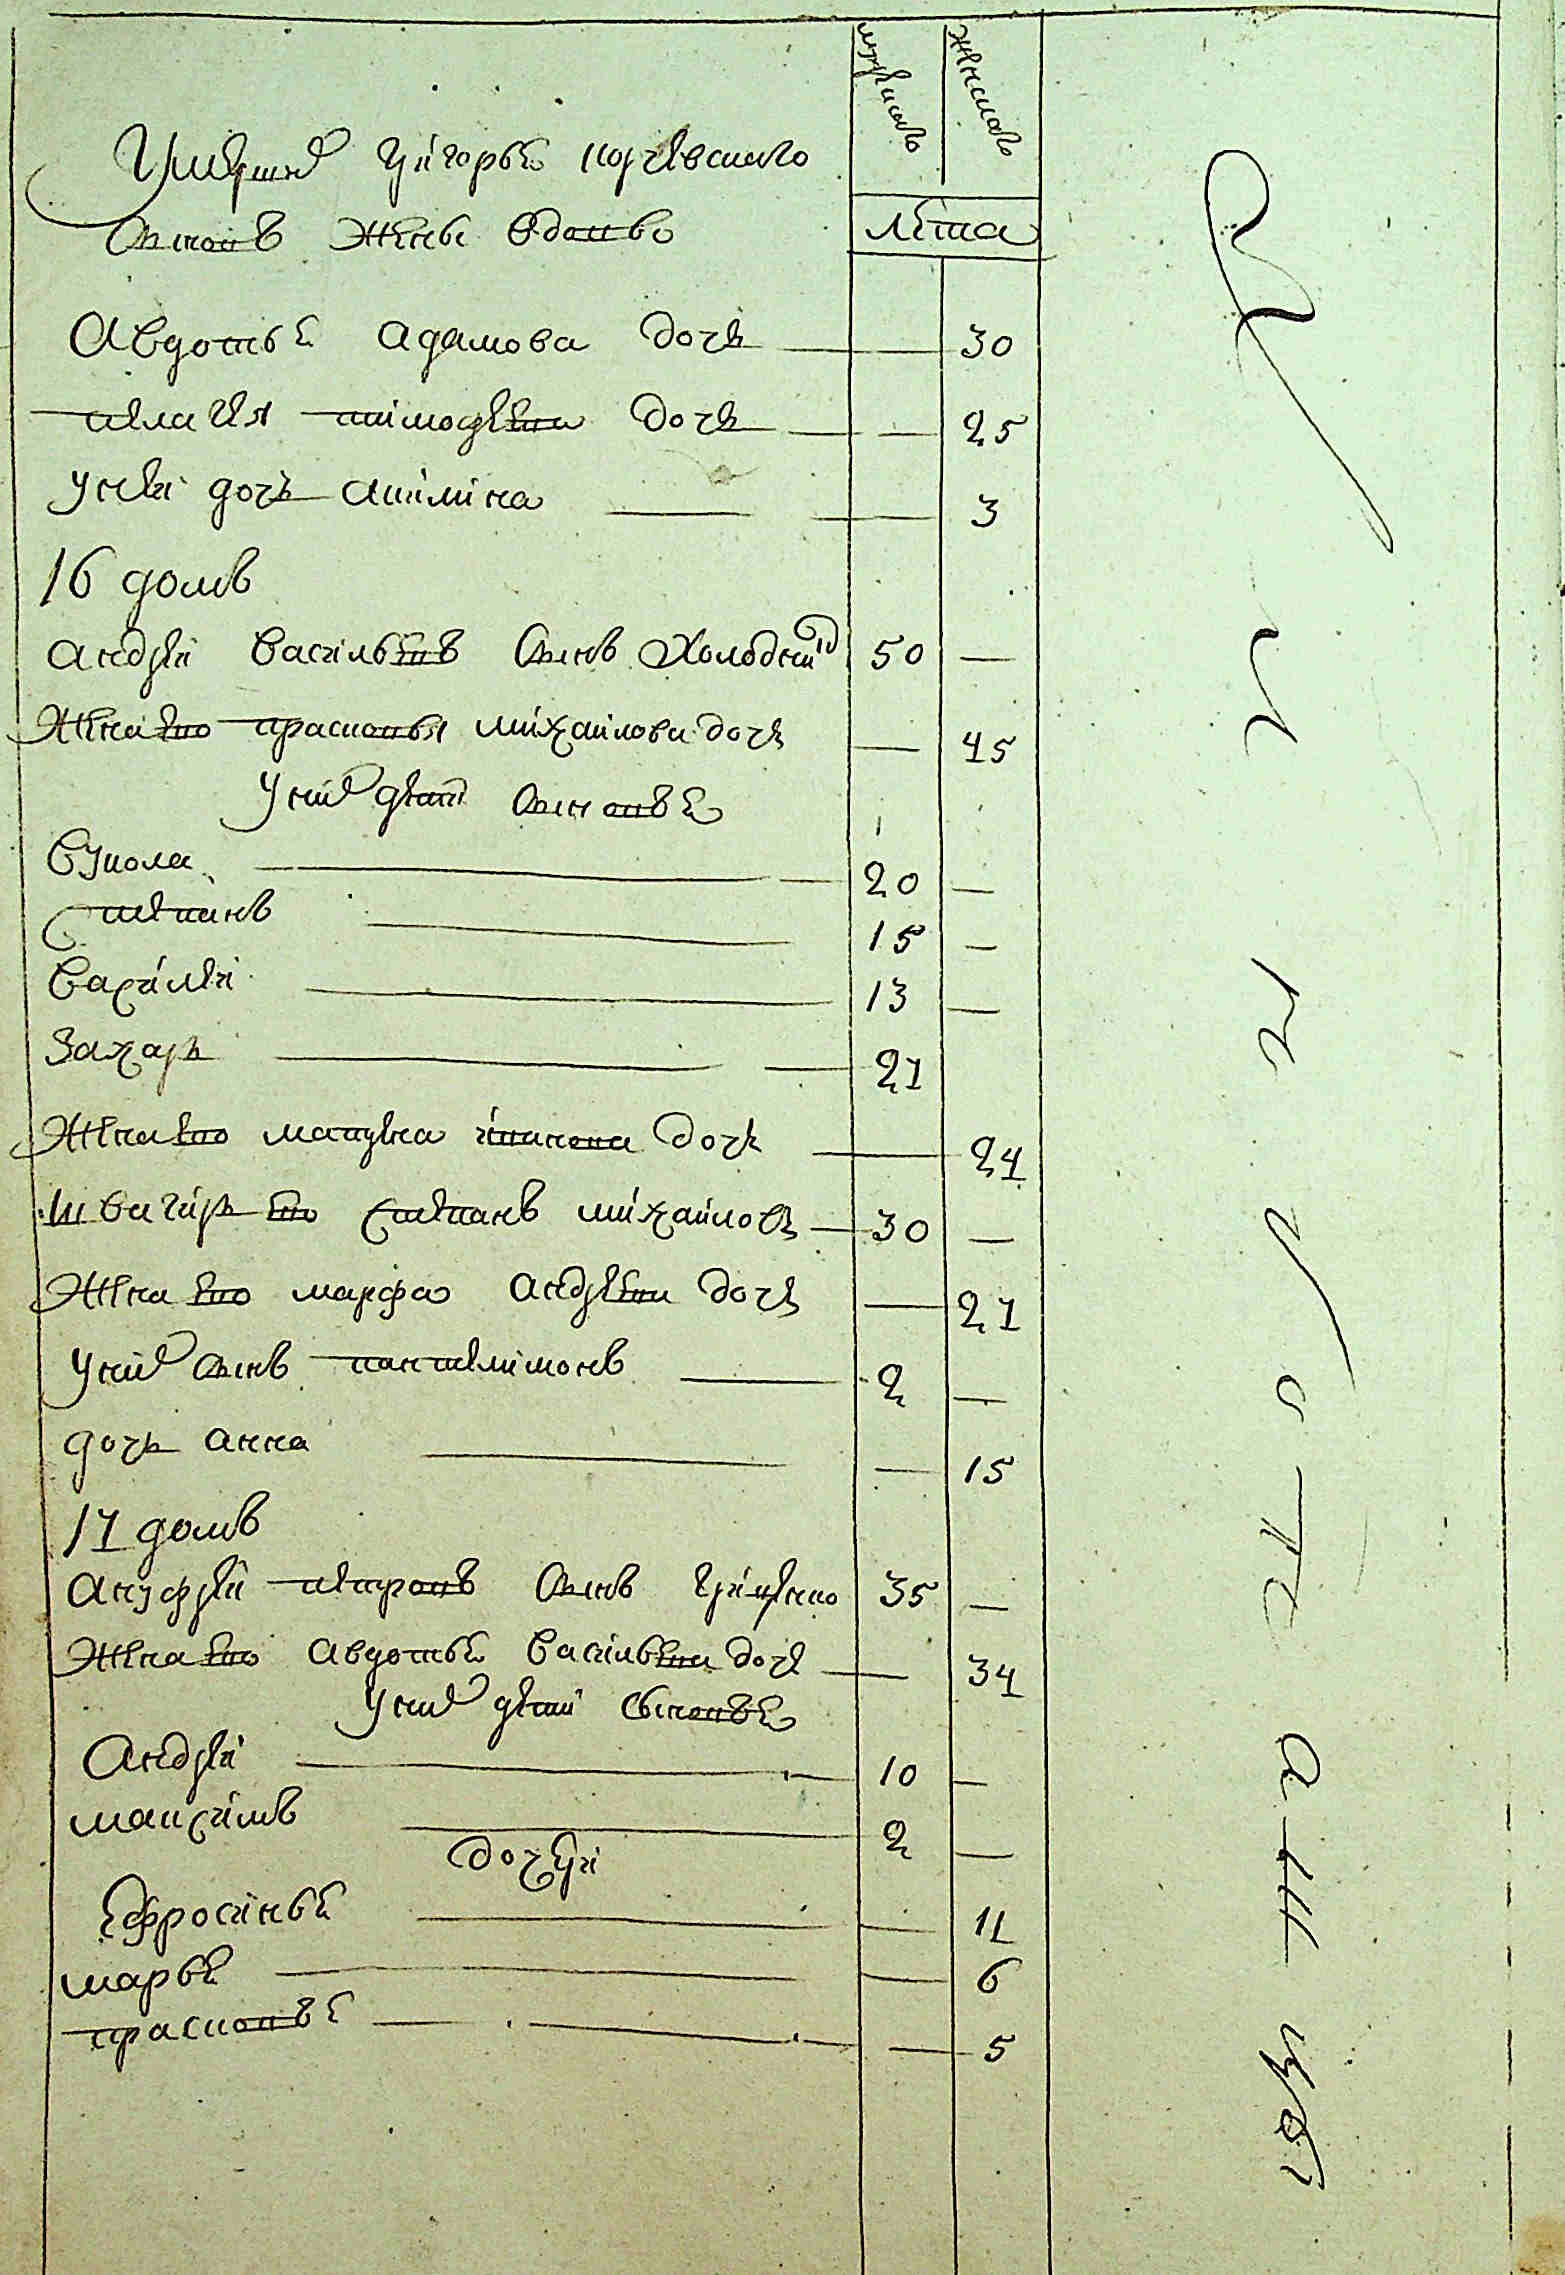 мужискъ женскъ
Умершей григорья корчевского
сыновъ жены вдовы
лета
Авдотья адамова дочь — — 30
пелагея тимофеева дочь — — 25
унеи дочь акилина — — 3
16 домъ
андреи васильевъ сынъ холодний 50 —
Жена ево прасковья михаилова дочь — 45
Уних дети сыновья
Вукола — 20 —
Степанъ — 15 —
Василеи — 13 —
Захаръ — 27
Жена ево матрена иванова дочь — 24
швагиръ ево степанъ михаиловъ — 30 —
Жена ево марфа андреева дочь — 27
Уних сынъ пантелимонъ — 2 —
дочь анна — — 15
17 домъ
ануфреи петровъ сынъ гриценко 35 —
Жена ево авдотья васильева дочь — 34
Уних дети сыновья
Андреи — 10 —
максимъ — 2 —
дочери
Ефросинья — — 11
марья — — 6
прасковья — — 5